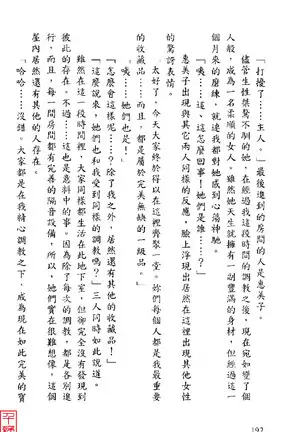 「打擾了……主人。」最後進到的房間的人是惠美子。
儘管生性桀驁不馴的她,在經過我這段時間的調教之後,現在宛如變了個
人般,成為一名柔順的女人。雖然她天生就擁有一副豐滿的身材,但經過這一
個月來的磨練,就連我都對她感到心蕩神馳。
「咦……這、這怎麼回事!她們是誰……?」
惠美子出現與其它兩人同樣的反應,臉上浮現出居然在這裡出現其他女性
的驚訝表情。
「太好了,今天大家終於得以在這裡齊聚一堂。妳們每個人都是我最重要
的收藏品……而且,都是屬於完美無缺的一級品。」
「咦……她們也是!」
「怎麼會這樣呢……?除了我之外,居然還有其他的收藏品!」
「這麼說來,她們也和我受到同樣的調教嗎?」三人同時如此說道。
雖然在這一段時間裡,大家同樣都生活在此地下室,但卻完全沒有發現到
彼此的存在。不過……這也是意料中的事。因為除了每次的調教,都是各別進
行,而且,每一間房間都有完善的隔音設備,所以,她們實在很難想像,這個
屋內居然還有其他的人存在。
「哈哈……沒錯。大家都是在我精心調教之下,成為現在如此完美的寶